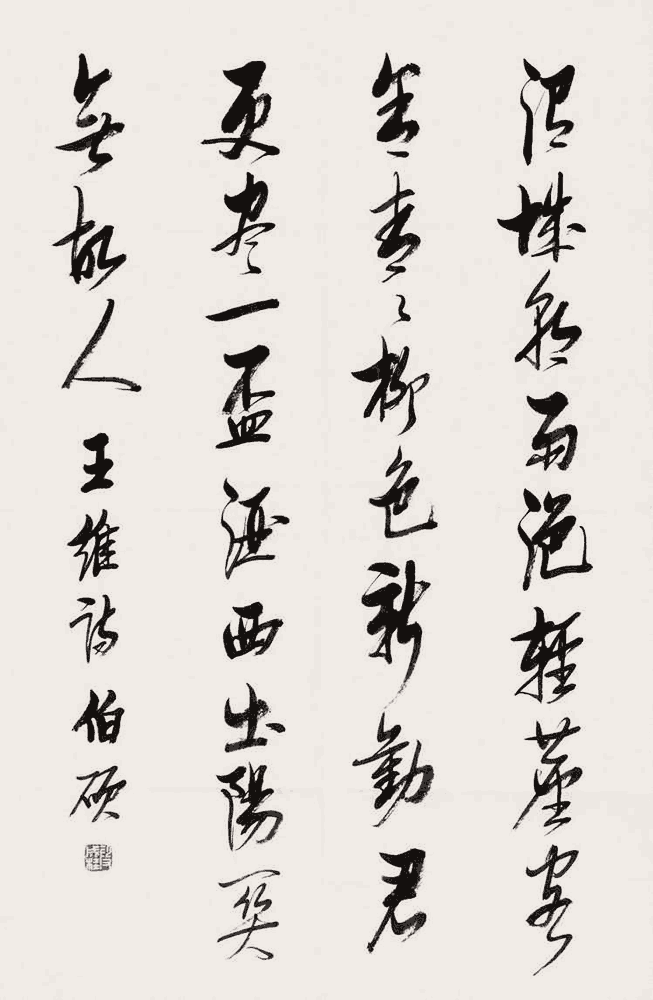 渭城朝雨浥輕塵客
舍青々柳色新勸君
更盡一杯酒西出陽關
無故人王維詩伯碩